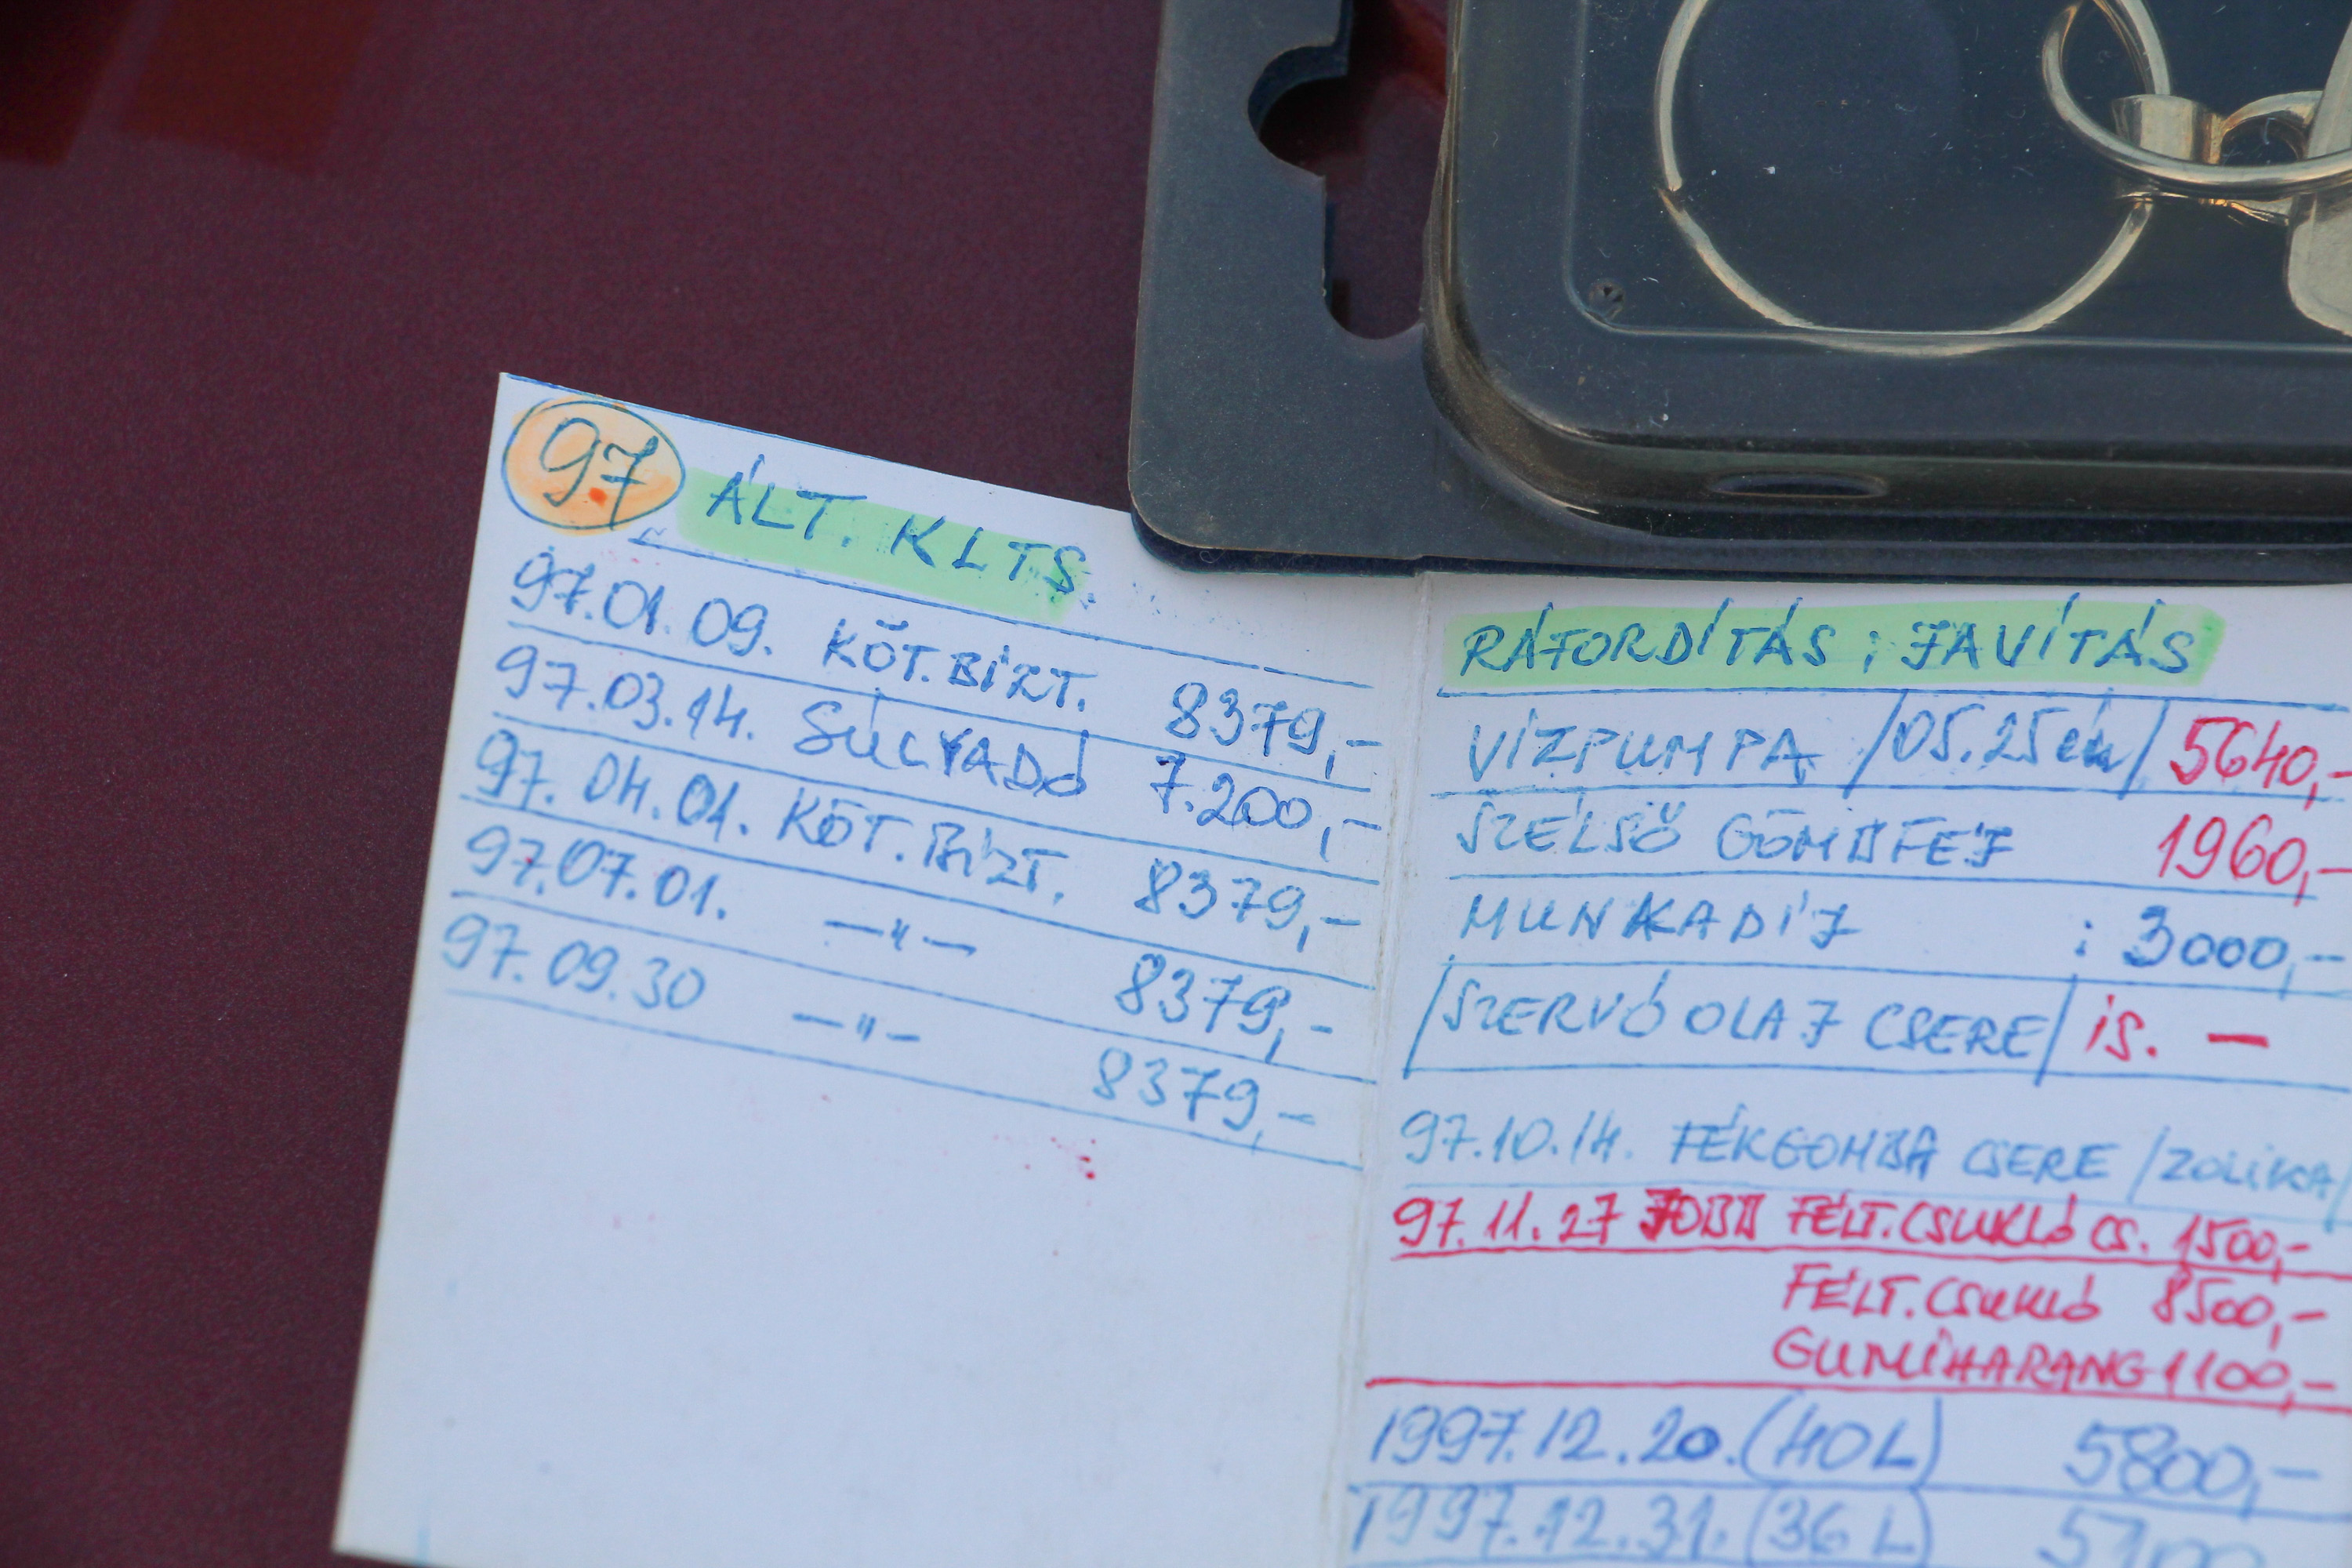 97
ÁLT. KLTS.
97.01.09. KÖT.BIZT. 8379,-
97.03.14. SÚLYADÓ 7.200,-
97.04.01. KÖT.BIZT. 8379,-
97.07.01. —"— 8379,-
97.09.30 —"— 8379,-
RÁFORDÍTÁS; JAVÍTÁS
VÍZPUMPA /05.25 5640,-
SZÉLSŐ GÖMBFEJ 1960,-
MUNKADÍJ : 3000,-
/SZERVÓ OLAJ CSERE/ is. —
97.10.14. FÉKGOMBA CSERE /ZOLIKA/
97.11.27 JOBB FÉLT.CSUKLÓ CS. 1500,-
FÉLT.CSUKLÓ 8500,-
GUMIHARANG 1100,-
1997.12.20.(40L) 5800,-
1997.12.31.(36L)